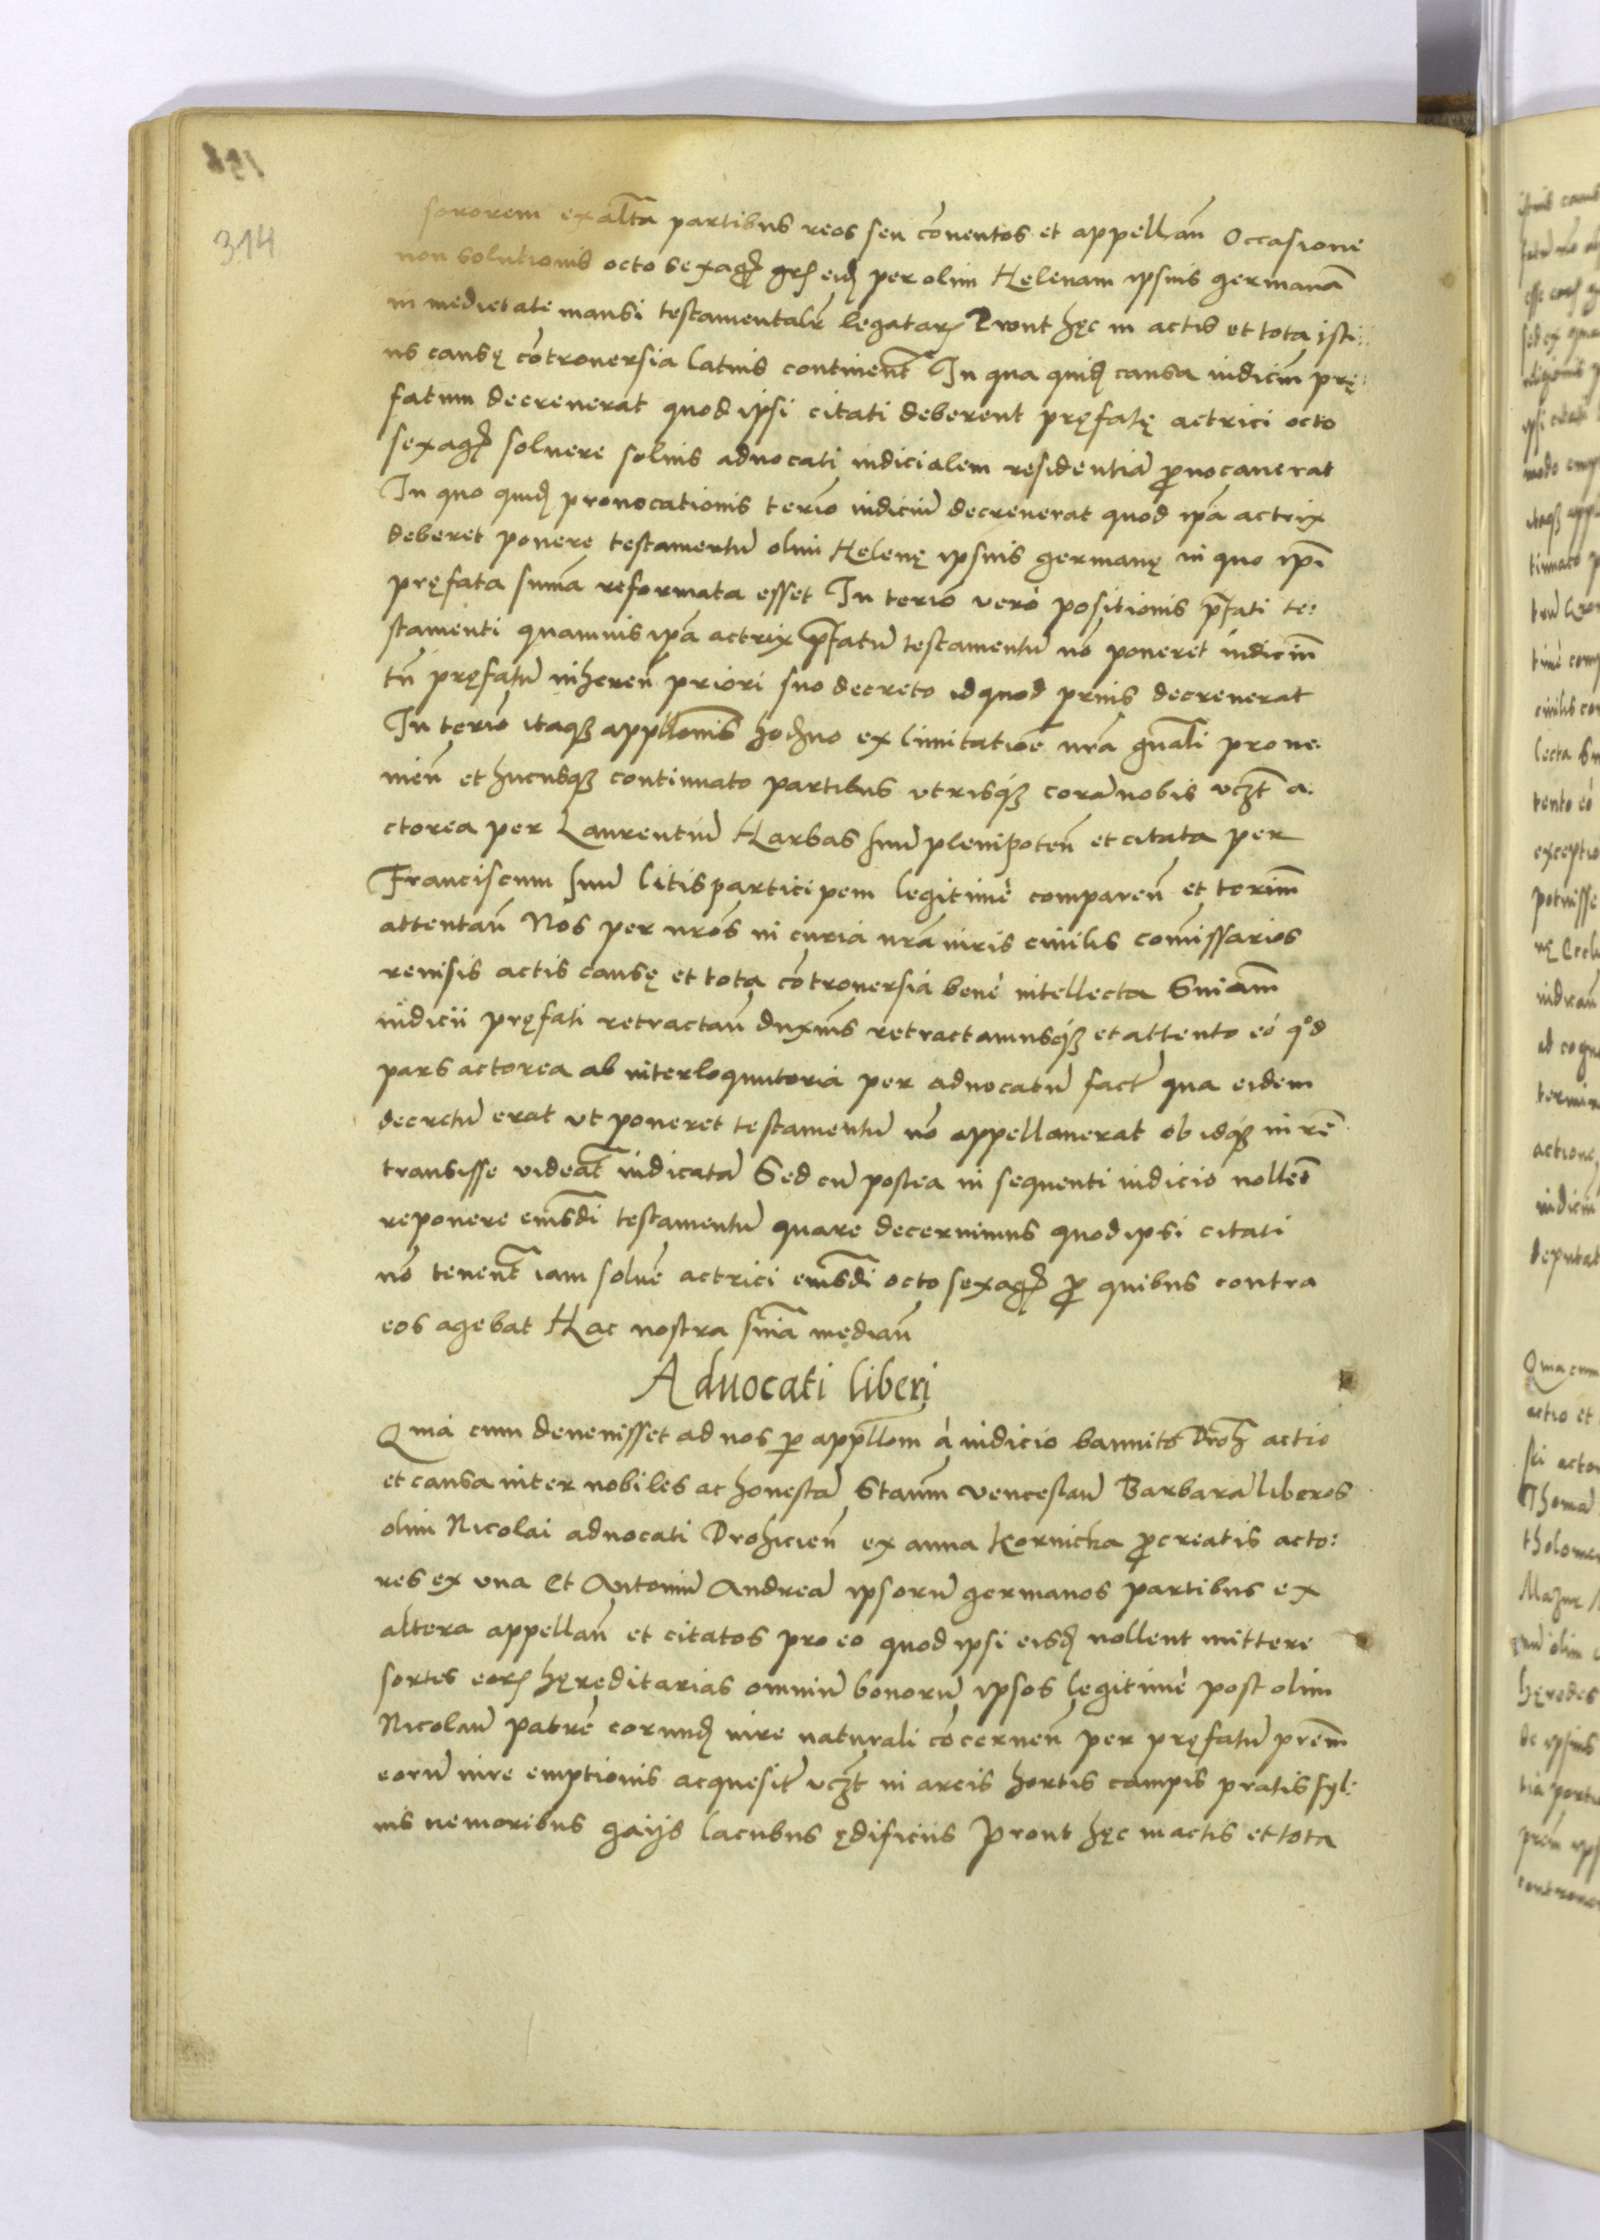 314
sororem ex altā partibus reos seu cōuentos et appellan̄ Occasione
non solutionis octo sexag̃ gr̃ eid̄ per olim Helenam ipsius germanā
in medietate mansi testamentalr̄ legatar̃ Prout hęc in actis et tota isti:
us causę cōtrouersia latius continent̄ In qua quid̄ causa iudiciū prę:
fatum decreuerat quod ipsi citati deberent pręfatę actrici octo
sexag̃ soluere solius aduocati iudicialem residentiā ꝓuocauerat
In quo quid̄ prouocationis term̄o iudiciū decreuerat quod ip̄a actrix
deberet ponere testamentū olim Helenę ipsius germanę in quo ip̄i
pręfata sum̄a reformata esset In term̄o verò positionis p̄fati te:
stamenti quamuis ip̄a actrix p̄fatū testamentū nō poneret iudiciū
tn̄ pręfatū inheren̄ priori suo decreto id quod prius decreuerat
In term̄o itaq₃ appll̄onis hod̄no ex limitatiōe nr̄a gn̄ali proue:
nien̄ et hucusq₃ continuato partibus vtrisq́₃ corā nobis vcz̄t a:
ctorea per Laurentiū Harbas suū plenipoten̄ et citata per
Franciscum suū litis participem legitimè comparen̄ et term̄
attentan̄ Nos per nr̄os in curia nr̄a iuris ciuilis com̄issarios
reuisis actis causę et tota cōtrouersia benè intellecta Sn̄iam
iudicii pręfati retractan̄ duxim̄s retractamusq́₃ et attento eò qͦd
pars actorea ab interloquutoria per aduocatū fact̄ qua eidem
decretū erat vt poneret testamentū nō appellauerat ob idq́₃ in rē
transisse videat̄ iudicatā Sed cū postea in sequenti iudicio nollet
reponere eiusd̄i testamentū quare decernimus quod ipsi citati
nō tenent̄ iam soluē actrici eiusd̄i octo sexag̃ ꝓ quibus contra
eos agebat Hac nostra sn̄ia median̄
Aduocati liberi
Quia cum deuenisset ad nos ꝑ appll̄om à iudicio bannito Droh̄ actio
et causa inter nobiles ac honestā Stan̄m Venceslaū Barbarā liberos
olim Nicolai aduocati Drohicien̄ ex anna Kornicka ꝓcreatis acto:
res ex vna Et Antoniū Andreā ipsorū germanos partibus ex
altera appellan̄ et citatos pro eo quod ipsi eisd̄ nollent mittere
sortes eor̃ hęreditarias omniū bonorū ipsos legitimè post olim
Nicolaū patrē eorund̄ iure naturali cōcernen̄ per pręfatū prēm
eorū iure emptionis acquesit̄ vcz̄t in areis hortis campis pratis syl:
uis nemoribus gaijs lacubus ędificiis Prout hęc in actis et tota